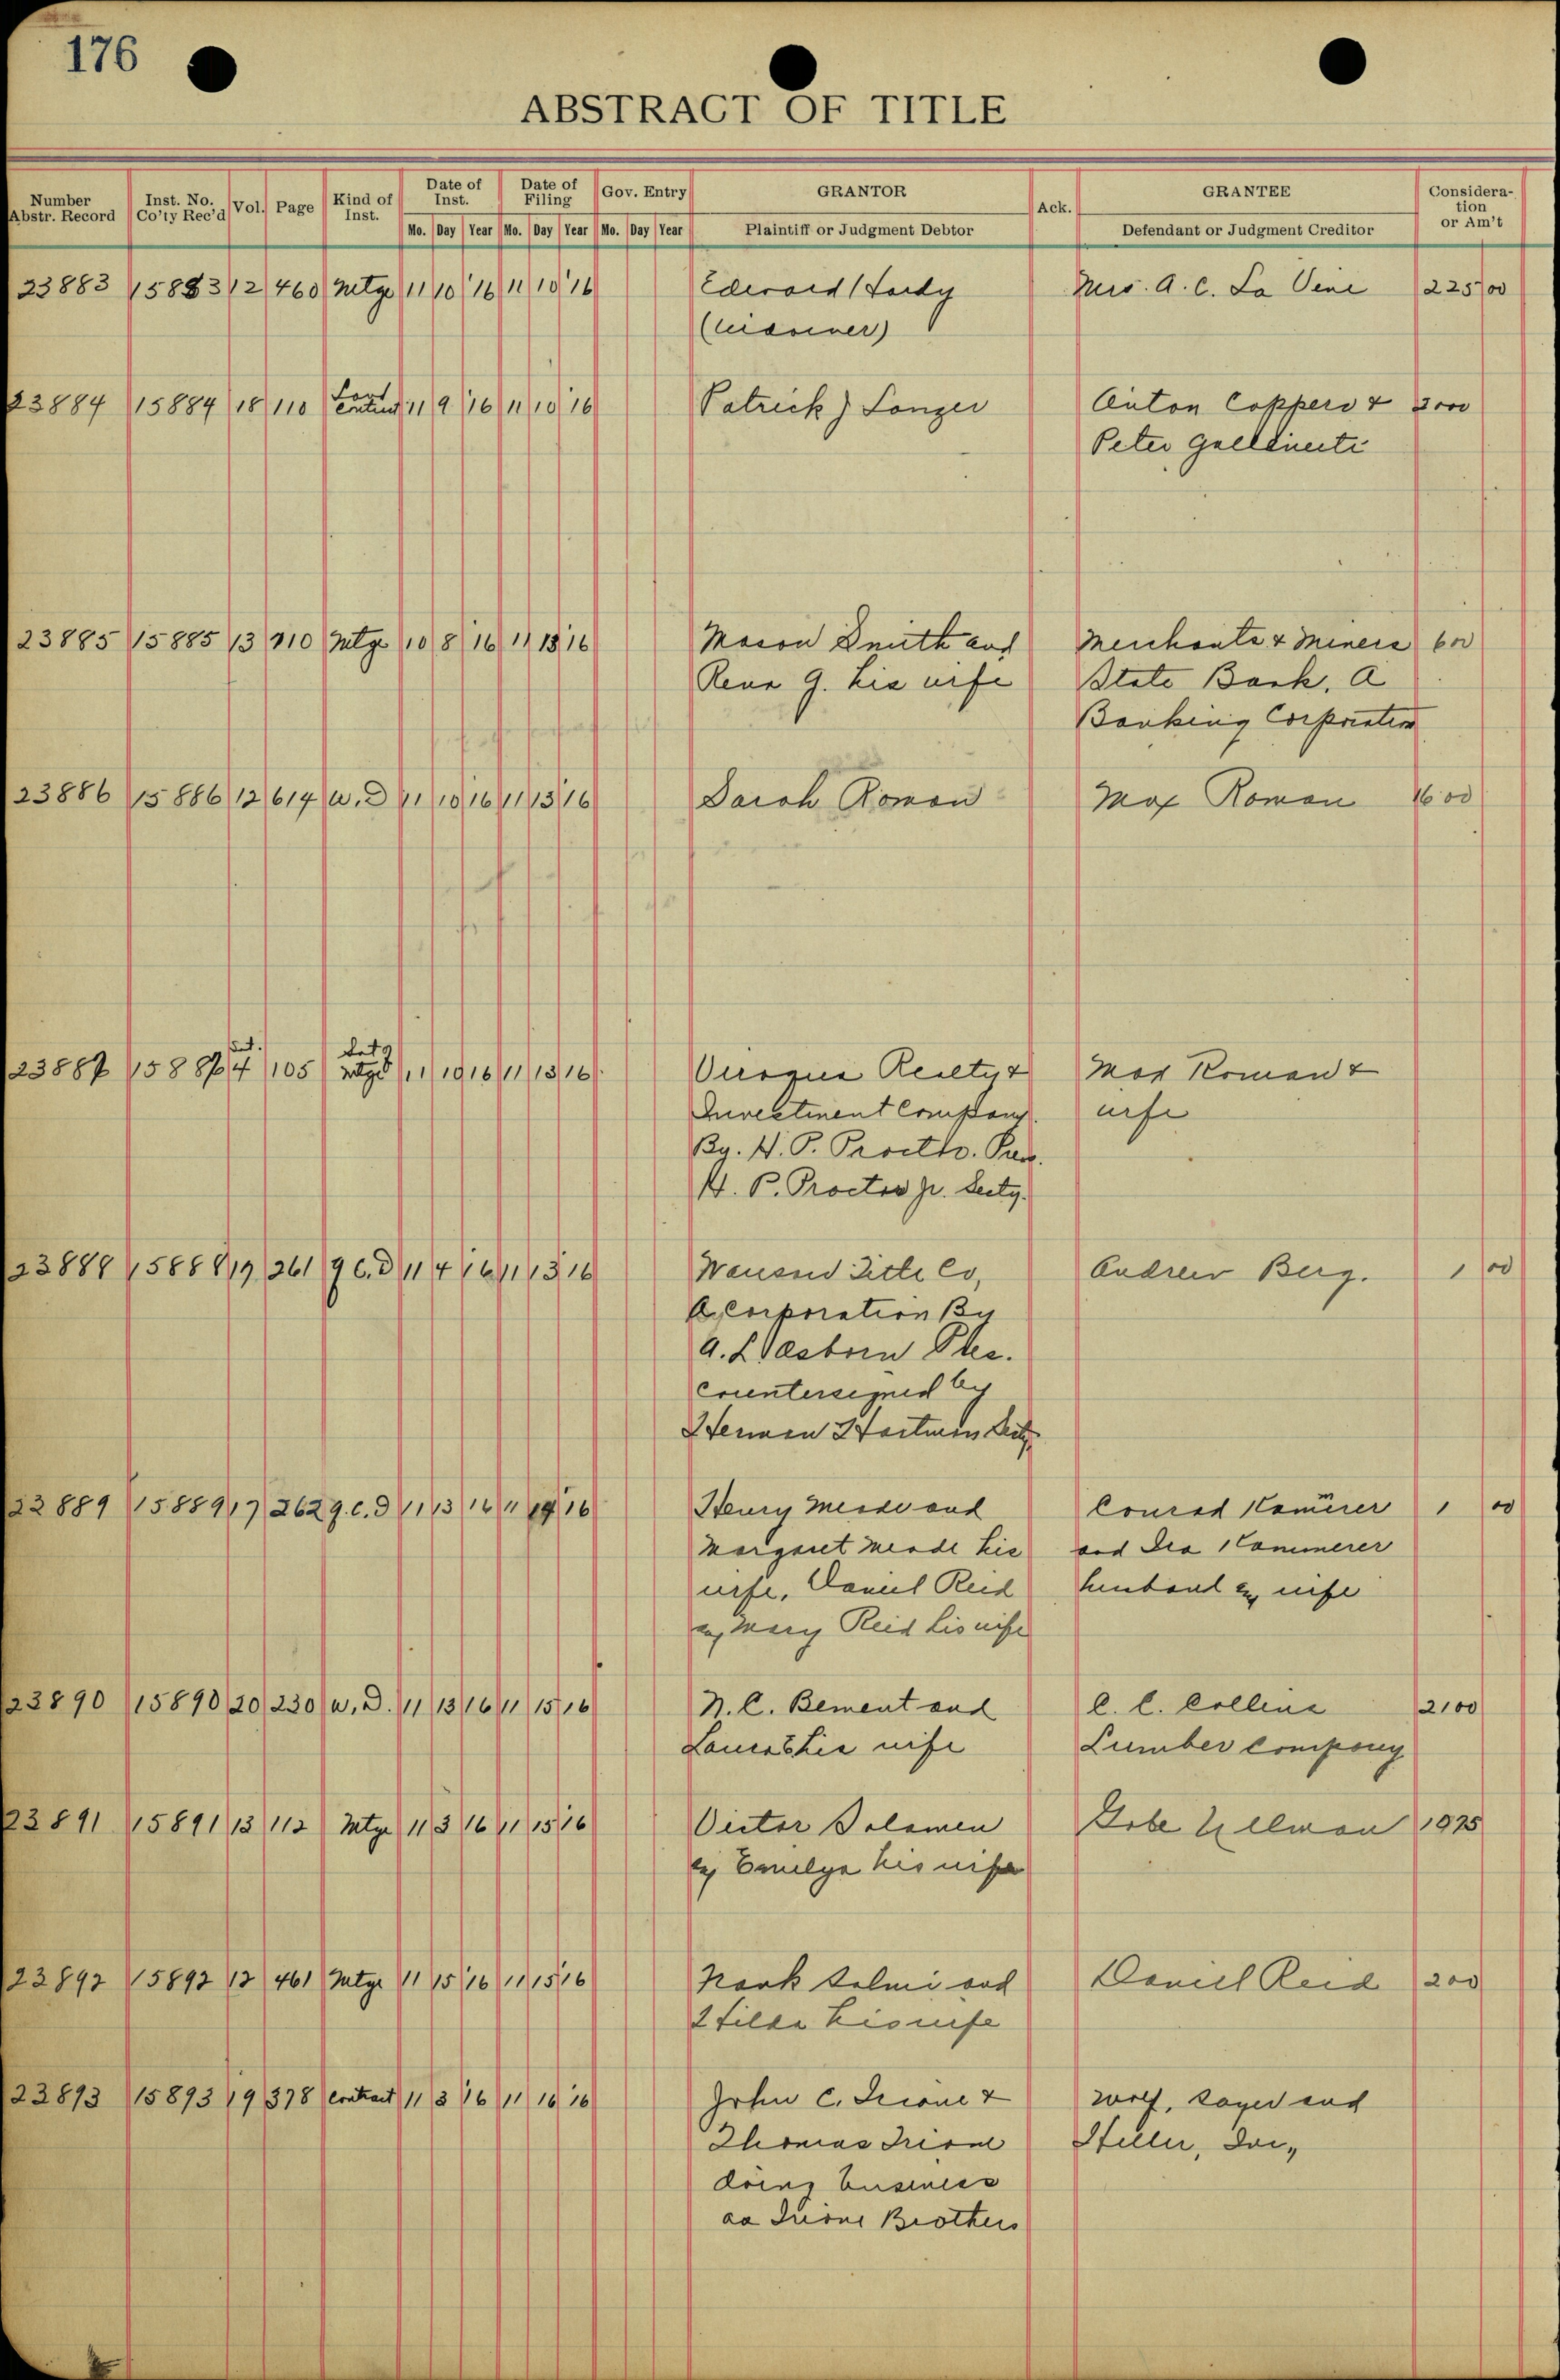 176
ABSTRACT OF TITLE
Number Abstr. Record Inst. No. Co'ty Rec'd Vol. Page Kind of Inst. Date of Inst. Date of Filing Gov. Entry GRANTOR Ack. GRANTEE Considera-tion or Am't
Mo. Day Year Mo. Day Year Mo. Day Year Plaintiff or Judgment Debtor Defendant or Judgment Creditor
23883 15883 12 460 Mtge 11 10 16 11 10 16 Mrs. A. C. La 225 00
23884 15884 18 110 11 9 16 11 10 16 Patrick J Longer Anton Coppero &
Peter
23885 15885 13 110 Mtge 10 8 16 11 13 16 Mason Smith and Merchants & Miners 600
Rena G. his wife State Bank, A
Banking Corporation
23886 15886 12 614 W. D 11 10 16 11 13 16 Sarah Roman Max Roman 1600
23887 15887 4 105 Sat of Mtge 11 10 16 11 13 16 Realty & Max Roman &
Investment Company. wife
By. H. P. Proctor. Pres.
H. P. Proctor Jr. Secty.
23888 15888 19 261 Q C. D 11 4 16 11 13 16 Title Co, Andrew Berg. 1 00
A Corporation By
A. L. Osborn Pres.
Countersigned by
Herman Hartman Secty
23889 15889 17 262 Q. C. D 11 13 16 11 14 16 Henry Meade and Conrad Kamerer 1 00
Margaret Meade his and Ida Kammerer
wife, Daniel Reid husband & wife
& Mary Reid his wife
23890 15890 20 230 W. D. 11 13 16 11 15 16 N. C. Bement and C. C. Collins 2100
Laura B his wife Lumber Company
23891 15891 13 112 Mtge 11 3 16 11 15 16 Victor Solomen Gobe Ullman 1975
& his wife
23892 15892 12 461 Mtge 11 15 16 11 15 16 and Daniel Reid 200
Hilda his wife
23893 15893 19 378 Contract 11 3 16 11 16 16 John C. Irione & Wolf, Sayer and
Thomas Irione Heller, Inc,
doing business
as Irione Brothers